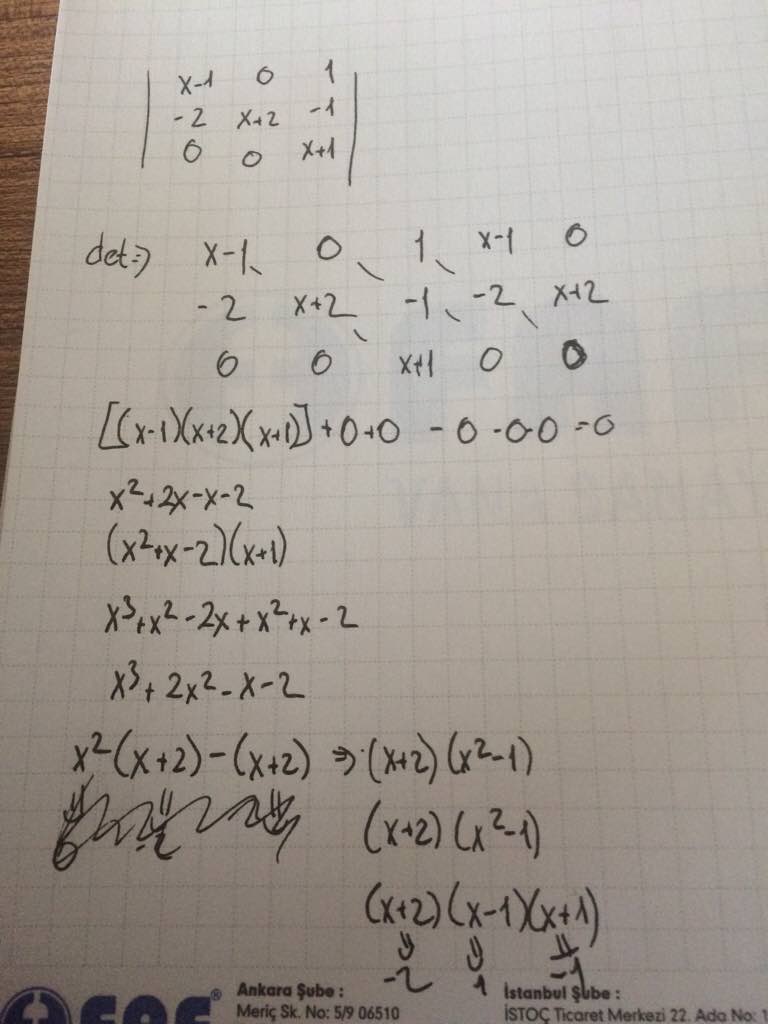 x-1 0 1
-2 x+2 -1
0 0 x+1
det⇒ x-1 0 1 x-1 0
-2 x+2 -1 -2 x+2
0 0 x+1 0 0
[(x-1)(x+2)(x+1)]+0+0 -0-0-0=0
x²+2x-x-2
(x²+x-2)(x+1)
x³+x²-2x+x²+x-2
x³+2x²-x-2
x²(x+2)-(x+2) ⇒ (x+2)(x²-1)
(x+2)(x²-1)
(x+2)(x-1)(x+1)
-2 1 -1
Ankara Şube :
Meriç Sk. No: 5/9 06510
İstanbul Şube :
İSTOÇ Ticaret Merkezi 22. Ada No: 1